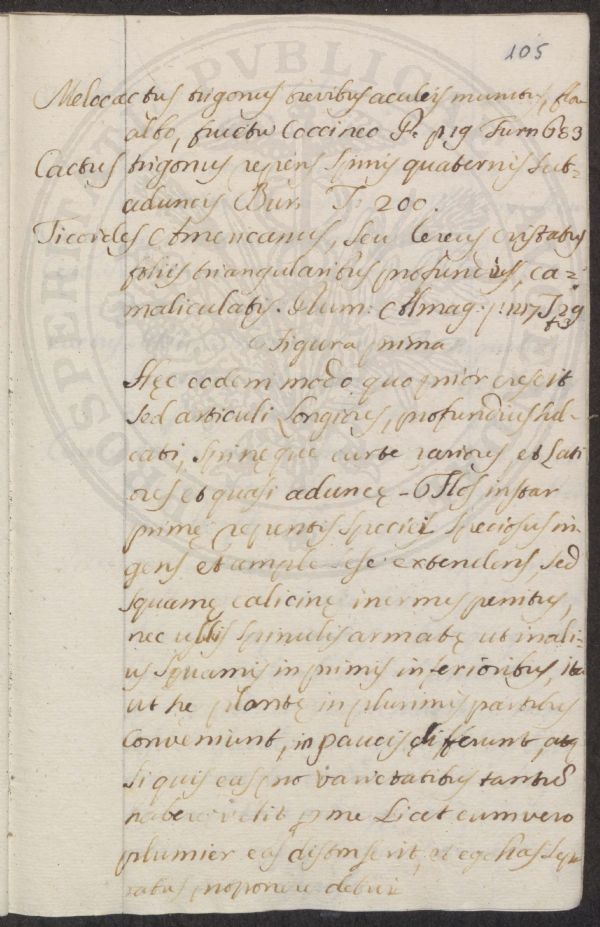 105
Melocactus trigonus brevibus aculeis munitus, flore
albo, fructu Coccineo Pl. p. 19 Turn 683
Cactus trigonus repens spinis quaternis sub-
aduncis Bur. T: 200.
Americanus, seu Cereus cristatus
foliis triangularibus profundius, ca-
naliculatis. Plum: Almag. p: 1217 T 29
f3
Figura prima
Hęc eodem modo quo prior crescit
sed articuli Longiores, profundius sul-
cati, spinęque curtę rariores, et Lati
ores et quasi aduncę - Flos instar
primę repentis speciei speciosus in
gens et amplę sese extendens, sed
squamę calicinę inermes penitus,
nec ullis spinulis armatę ut in ali-
is squamis in primis inferioribus, ita
ut hę plantę in plurimis partibus
Conveniunt, in paucis differunt, atq
si quis eas pro varietatibus tantum
habere velit p me Licet cum vero
plumier eas distinxerit, et ego has sepa
ratas proponere debui